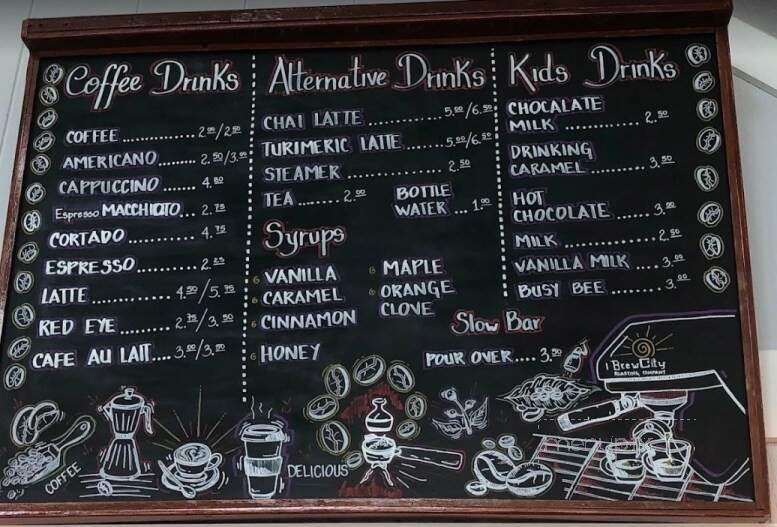 Coffee Drinks
COFFEE ........... 2.00/2.50
AMERICANO......... 2.50/3.00
CAPPUCCINO ...... 4.50
Espresso MACCHIOTO... 2.75
CORTADO ........... 4.75
ESPRESSO.......... 2.25
LATTE ............ 4.50/5.75
RED EYE ......... 2.75/3.50
CAFE AU LAIT.... 3.00/3.50
Alternative Drinks
CHAI LATTE .............. 5.00/6.50
TURIMERIC LATTE ......... 5.00/6.50
STEAMER ............... 2.50
TEA ....... 2.00
BOTTLE
WATER ... 1.00
Syrups
VANILLA
CARAMEL
CINNAMON
HONEY
MAPLE
ORANGE
CLOVE
Slow Bar
POUR OVER.... 3.50
Kids Drinks
CHOCALATE
MILK ............ 2.50
DRINKING
CARAMEL ......... 3.50
HOT
CHOCOLATE ...... 3.00
MILK .............. 2.50
VANILLA MILK ... 3.00
BUSY BEE ....... 3.00
BrewCity
ROASTING COMPANY
COFFEE
DELICIOUS